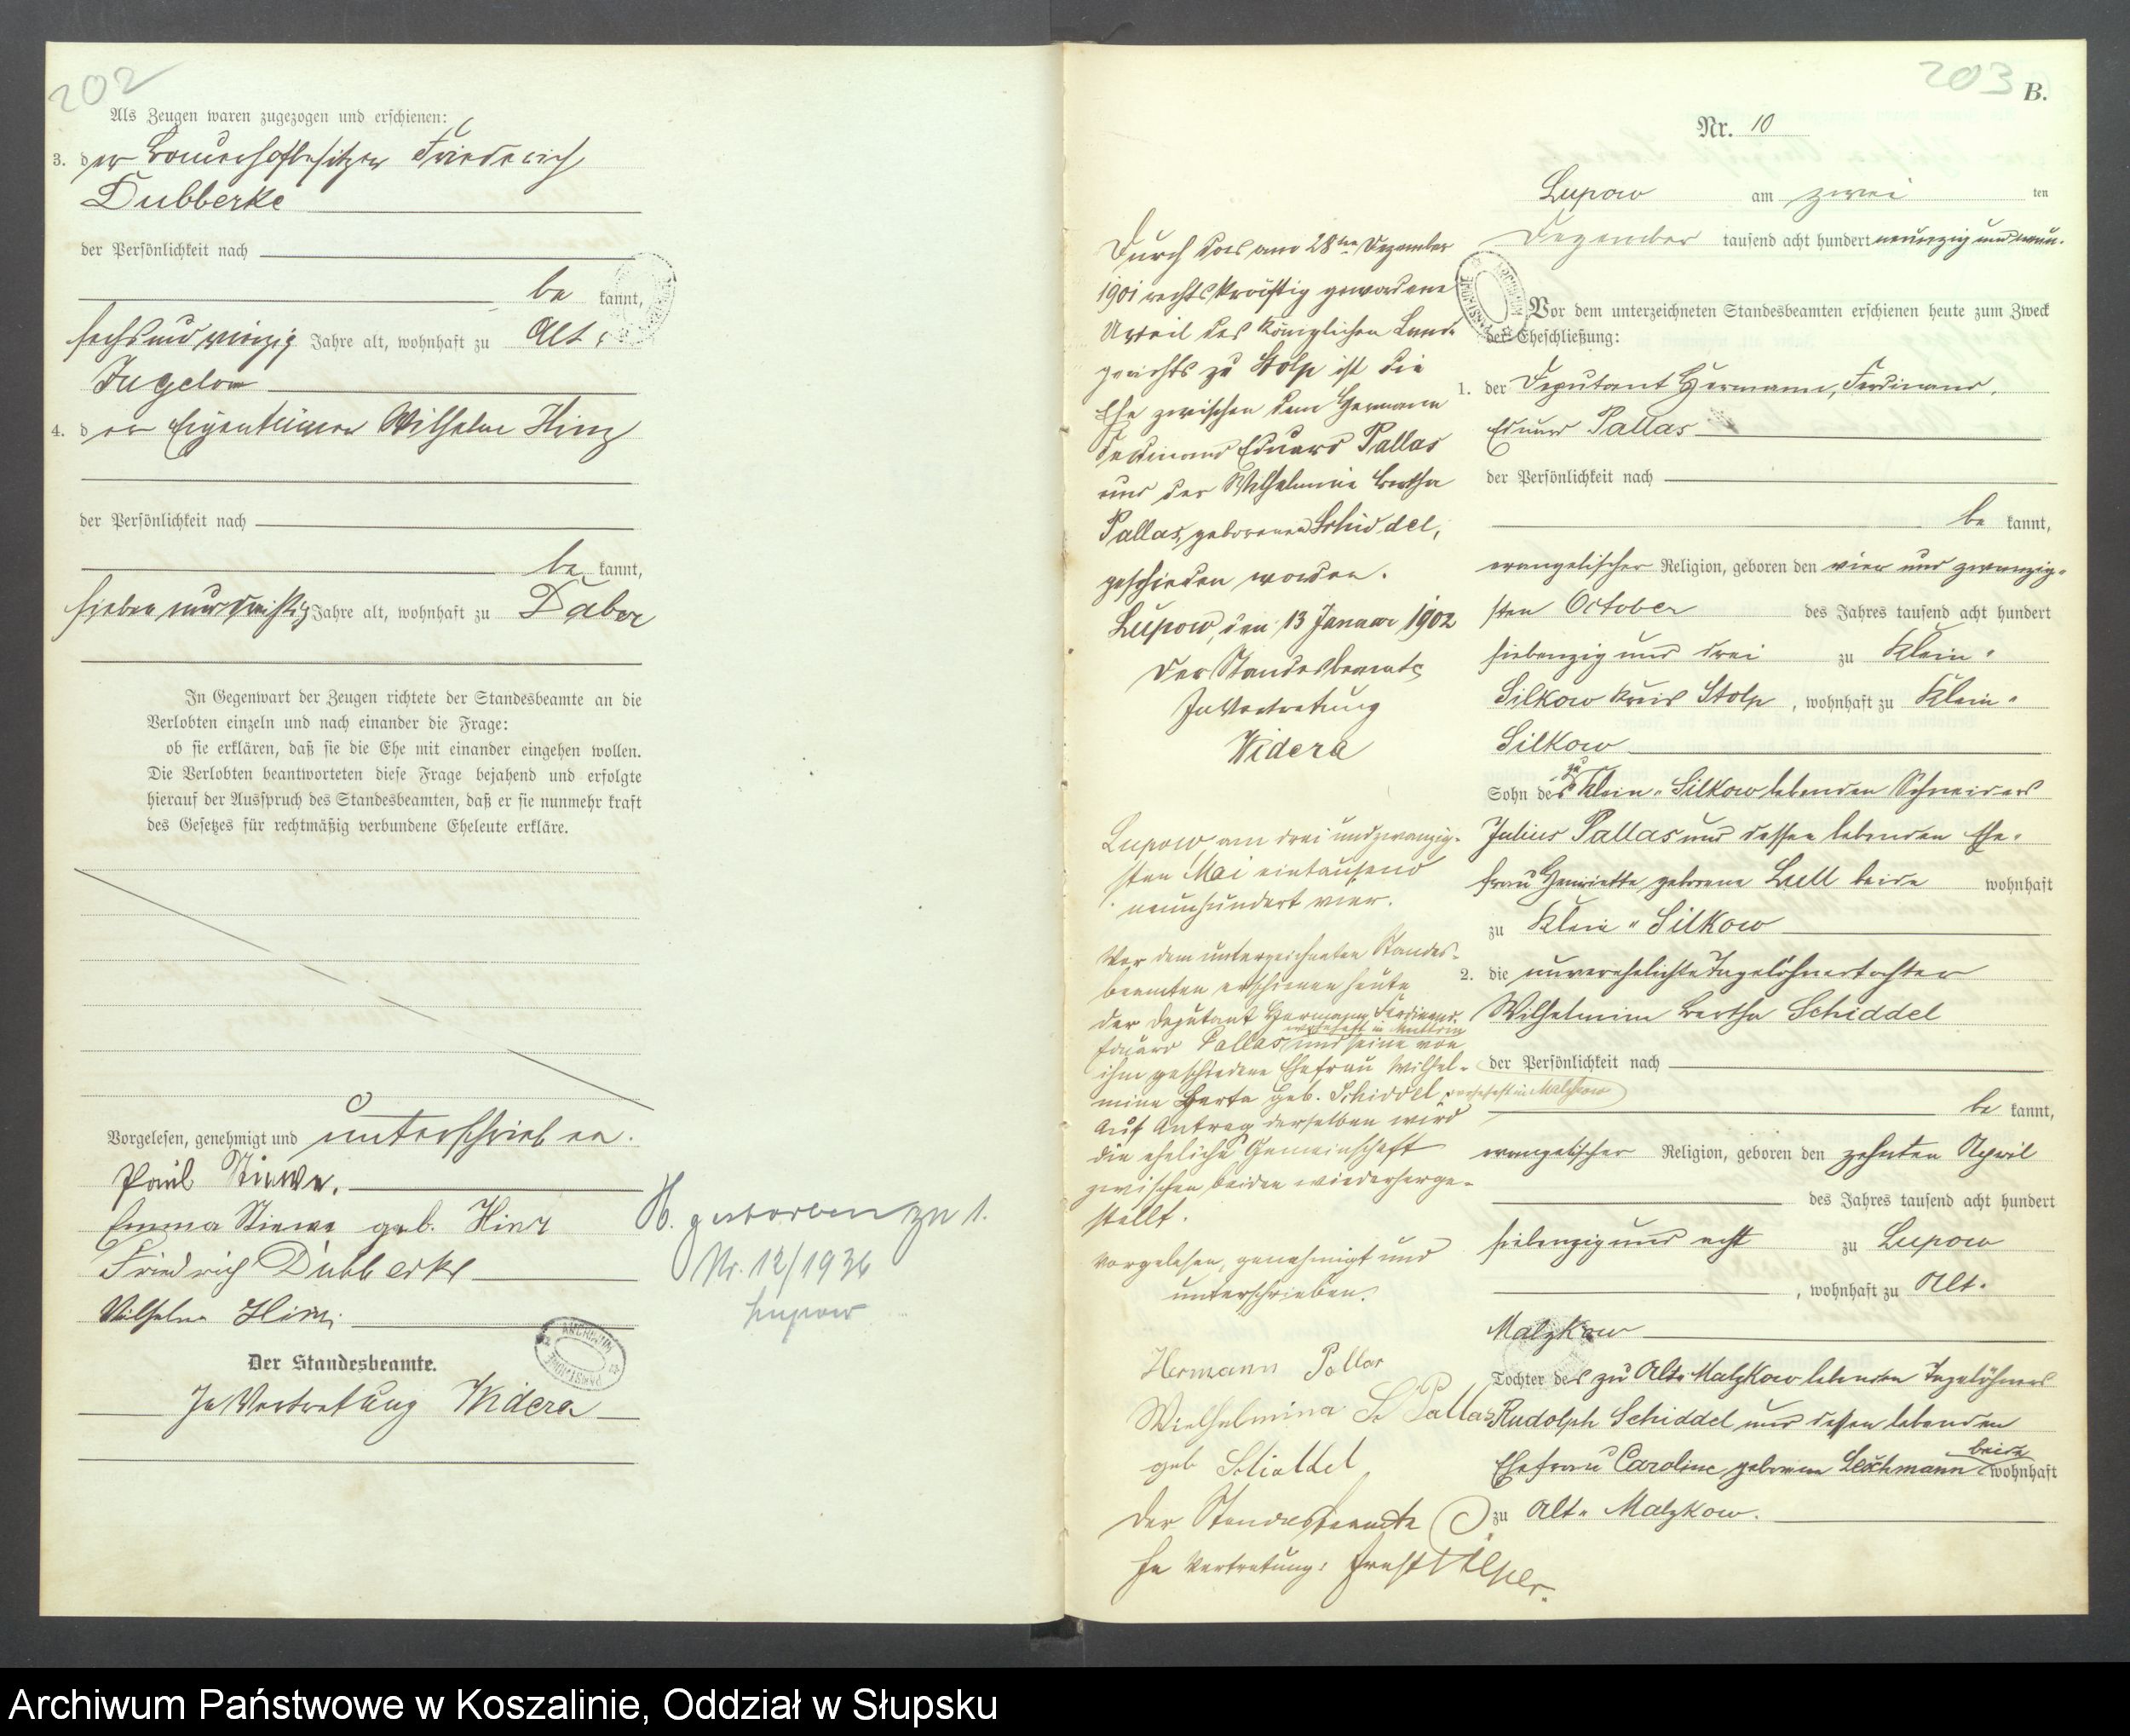 202
Als Zeugen waren zugezogen und erschienen:
3. der Bauerhofbesitzer Friederich
Dubberke
der Persönlichkeit nach
be kannt,
sechsundvierzig Jahre alt, wohnhaft zu Alt-
Jugelow
4. der Eigentümer Wilhelm Hinz
der Persönlichkeit nach
be kannt,
sieben und dreißig Jahre alt, wohnhaft zu Daber
In Gegenwart der Zeugen richtete der Standesbeamte an die
Verlobten einzeln und nach einander die Frage:
ob sie erklären, daß sie die Ehe mit einander eingehen wollen.
Die Verlobten beantworteten diese Frage bejahend und erfolgte
hierauf der Ausspruch des Standesbeamten, daß er sie nunmehr kraft
des Gesetzes für rechtmäßig verbundene Eheleute erkläre.
Vorgelesen, genehmigt und unterschrieben.
Paul Stiewe.
Emma Stiewe geb. Hinz
Friedrich Dubberke
Wilhelm Hinz
Der Standesbeamte.
In Vertretung Widera
H. gestorben zu 1.
Nr. 12/1936
Lupow
203
B.
Nr. 10
Lupow am zwei ten
Dezember tausend acht hundert neunzig und neun.
Vor dem unterzeichneten Standesbeamten erschienen heute zum Zweck
der Eheschließung:
1. der Deputant Hermann, Ferdinand,
Eduard Pallas
der Persönlichkeit nach
be kannt,
evangelischer Religion, geboren den vier und zwanzig-
sten October des Jahres tausend acht hundert
siebenzig und drei zu Klein-
Silkow Kreis Stolp, wohnhaft zu Klein-
Silkow
Sohn des zu Klein-Silkow lebenden Schneiders
Julius Pallas und dessen lebenden Ehe-
frau Henriette geborene Lull beide wohnhaft
zu Klein-Silkow
2. die unverehelichte Tagelöhnertochter
Wilhelmine Bertha Schiddel
der Persönlichkeit nach
be kannt,
evangelischer Religion, geboren den zehnten April
des Jahres tausend acht hundert
siebenzig und acht zu Lupow
, wohnhaft zu Alt-
Malzkow
Tochter des zu Alt-Malzkow lebenden Tagelöhners
Rudolph Schiddel und dessen lebenden
Ehefrau Caroline geborene beide wohnhaft
zu Alt-Malzkow.
Durch das am 28ten Dezember
1901 rechtskräftig gewordene
Urteil des Königlichen Land-
gerichts zu Stolp ist die
Ehe zwischen dem Hermann
Ferdinand Eduard Pallas
und der Wilhelmine Bertha
Pallas, geborenen Schiddel,
geschieden worden.
Lupow, den 13 Januar 1902
Der Standesbeamte
In Vertretung
Widera
Lupow am drei und zwanzig-
sten Mai eintausend
neunhundert vier.
Vor dem unterzeichneten Standes-
beamten erschienen heute
der Deputant Hermann Ferdinand
Eduard Pallas wohnhaft in und seine von
ihm geschiedene Ehefrau Wilhel-
mine Berta geb. Schiddel, wohnhaft in Malzkow
Auf Antrag derselben wird
die eheliche Gemeinschaft
zwischen beiden wiederherge-
stellt.
Vorgelesen, genehmigt und
unterschrieben.
Hermann Pallas
Wielhelmina Pallas
geb Schiddel
Der Standesbeamte
In Vertretung: Ernst
Archiwum Państwowe w Koszalinie, Oddział w Słupsku